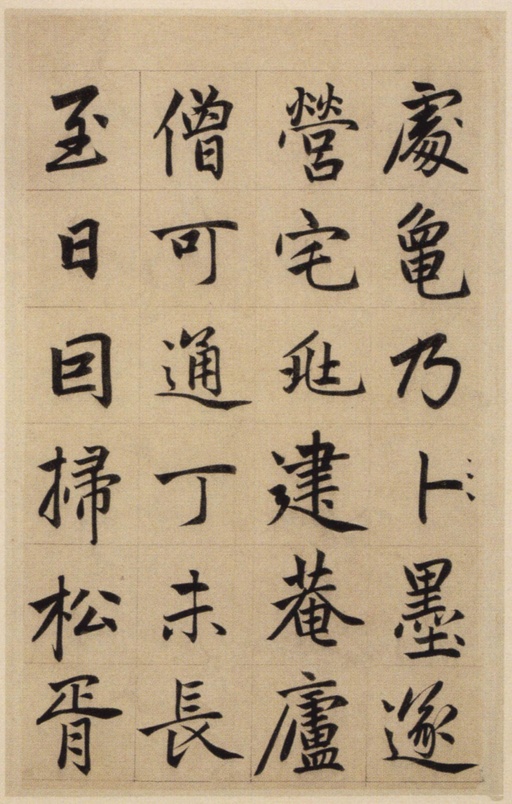 處龜乃卜墨遂
營宅兆建菴廬
僧可通丁未長
至日囬掃松胥